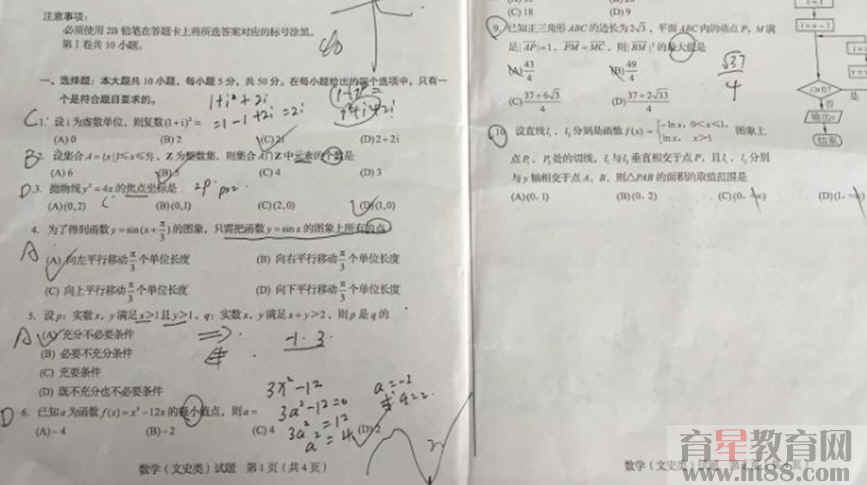 注意事项:
必须使用2B铅笔在答题卡上将所选答案对应的标号涂黑。
第Ⅰ卷共10小题。
一、选择题:本大题共10小题,每小题5分,共50分。在每小题给出的四个选项中,只有一
个是符合题目要求的。
1+i²+2i
C 1. 设i为虚数单位,则复数(1+i)²= =1-1+2i=2i
(A) 0 (B) 2 (C) 2i (D) 2+2i
B 2. 设集合A={x|1≤x≤5},Z为整数集,则集合A∩Z中元素的个数是
(A) 6 (B) 5 (C) 4 (D) 3
D 3. 抛物线y²=4x的焦点坐标是 2P
(A) (0, 2) (B) (0,1) (C) (2, 0) (D) (1,0)
4. 为了得到函数y=sin(x+π/3)的图象,只需把函数y=sin x的图象上所有的点
A
(A) 向左平行移动π/3个单位长度 (B) 向右平行移动π/3个单位长度
(C) 向上平行移动π/3个单位长度 (D) 向下平行移动π/3个单位长度
5. 设p:实数x,y满足x>1且y>1,q:实数x,y满足x+y>2,则p是q的
A (A) 充分不必要条件
(B) 必要不充分条件 -1 3
(C) 充要条件
(D) 既不充分也不必要条件
3x²-12
D 6. 已知a为函数f(x)=x³-12x的极小值点,则a=
(A) -4 (B) -2 (C) 4 (D) 2
3a²-12=0
3a²=12
a²=4
a=-2
a=2
数学(文史类)试题 第1页(共4页)
(C) 18 (D) 9
9. 已知正三角形ABC的边长为2√3,平面ABC内的动点P,M满
足|AP|=1,PM=MC,则|BM|²的最大值是
(A) 43/4 (B) 49/4 √37/4
(C) (37+6√3)/4 (D) (37+2√33)/4
10. 设直线l₁,l₂分别是函数f(x)={-ln x, 0<x<1, ln x, x>1 图象上
点P₁,P₂处的切线,l₁与l₂垂直相交于点P,且l₁,l₂分别
与y轴相交于点A,B,则△PAB的面积的取值范围是
(A) (0, 1) (B) (0, 2) (C) (0, +∞) (D) (1, +∞)
是
否
结束
数学(文史类)试题
育星教育网
www.ht88.com